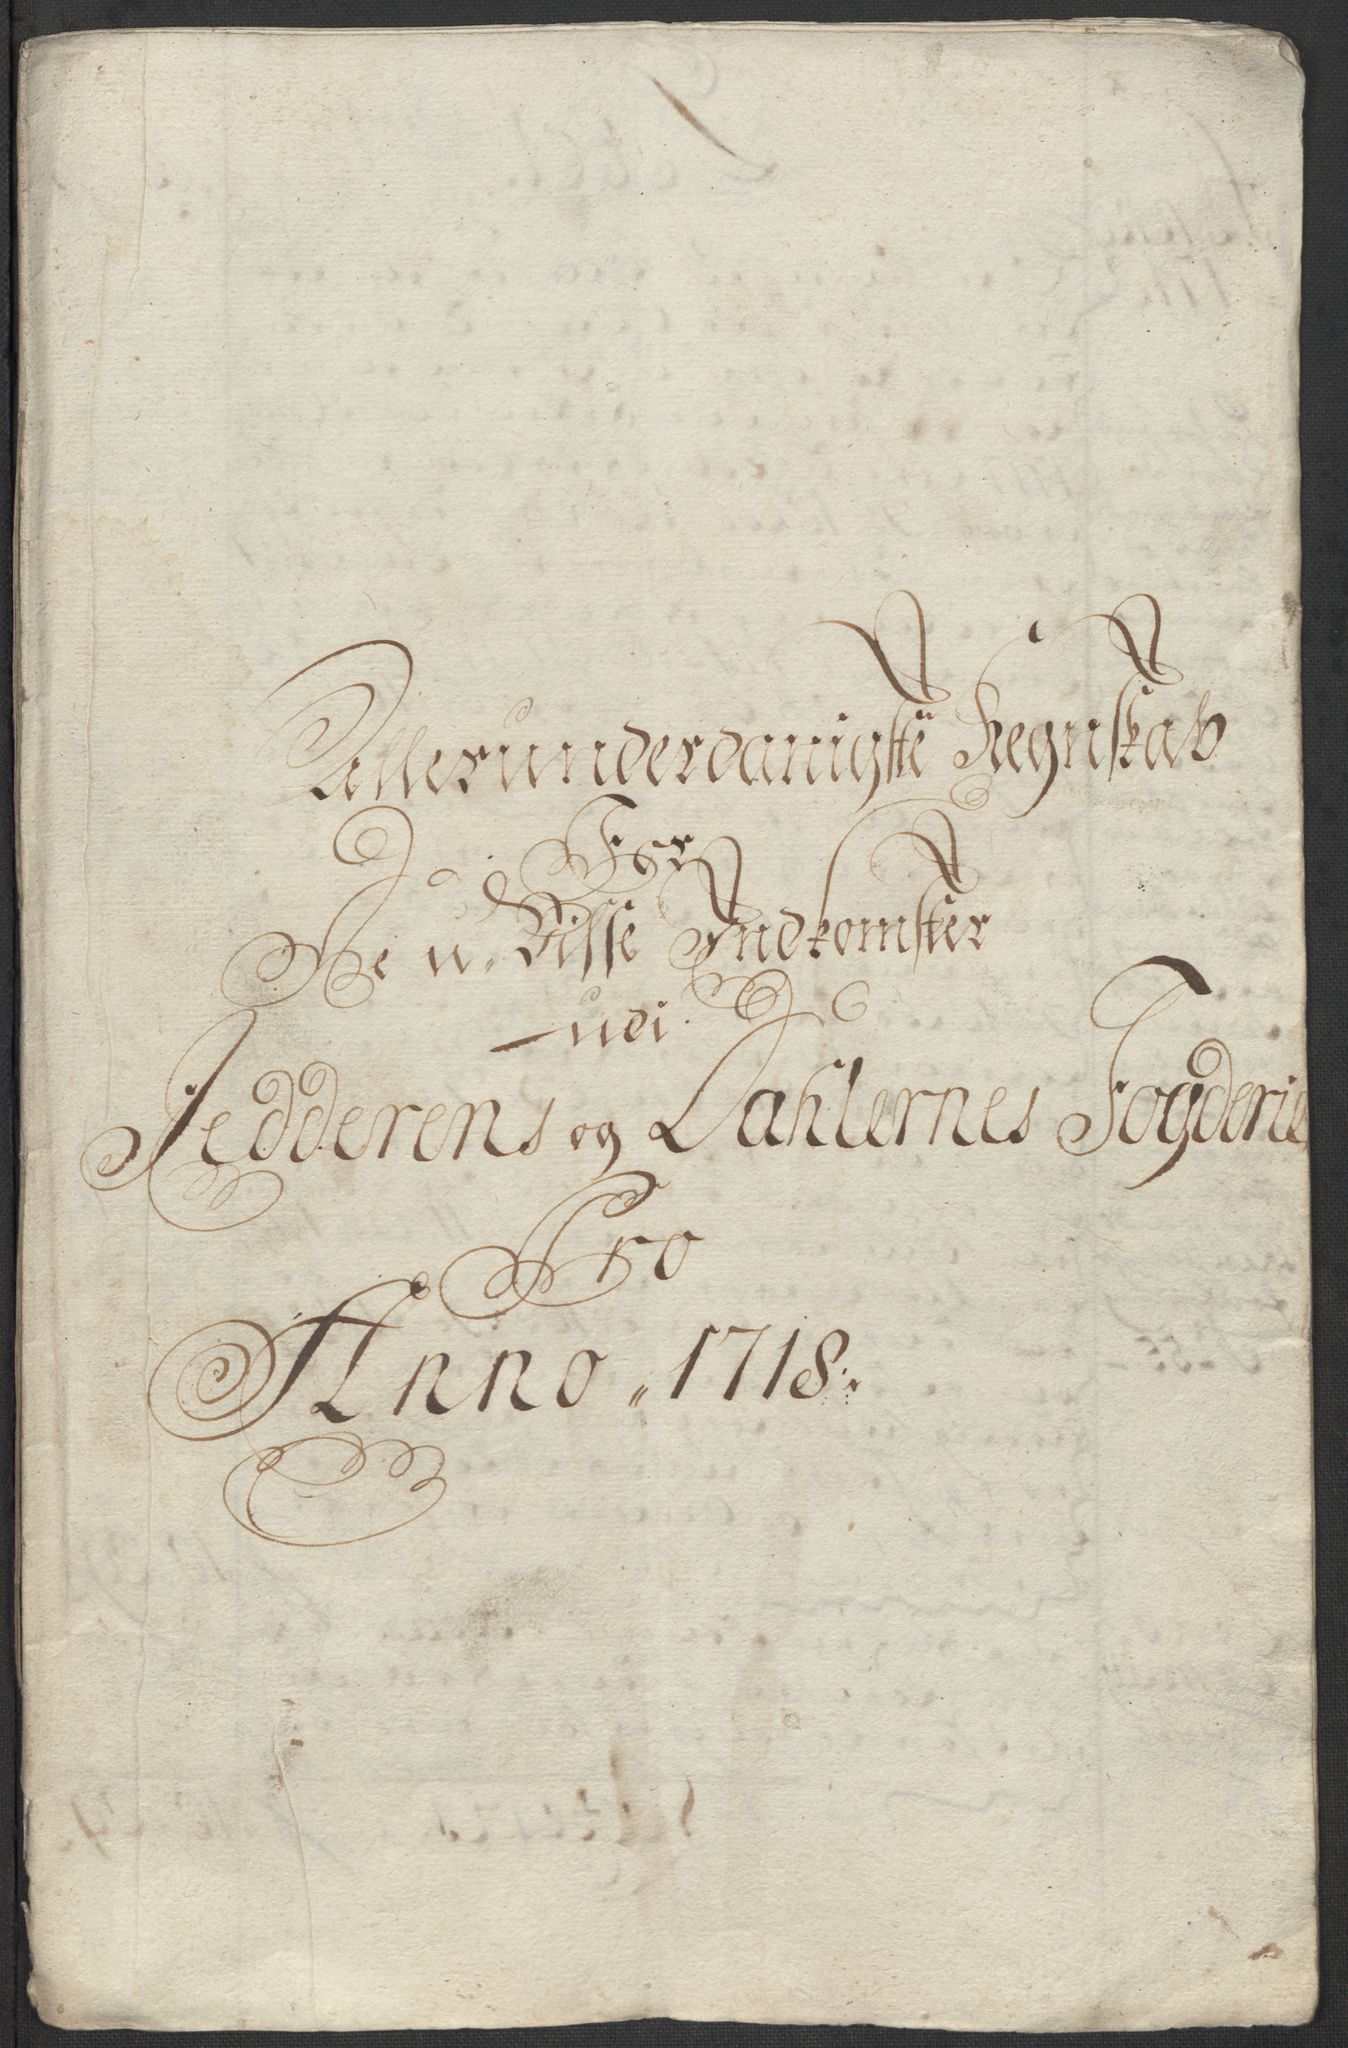 Allerunderdanigste Regnskab
For
De u-Visse Indkomster
udi
Jedderens og Dahlernes Fogderie
Pro
Anno. 1718.